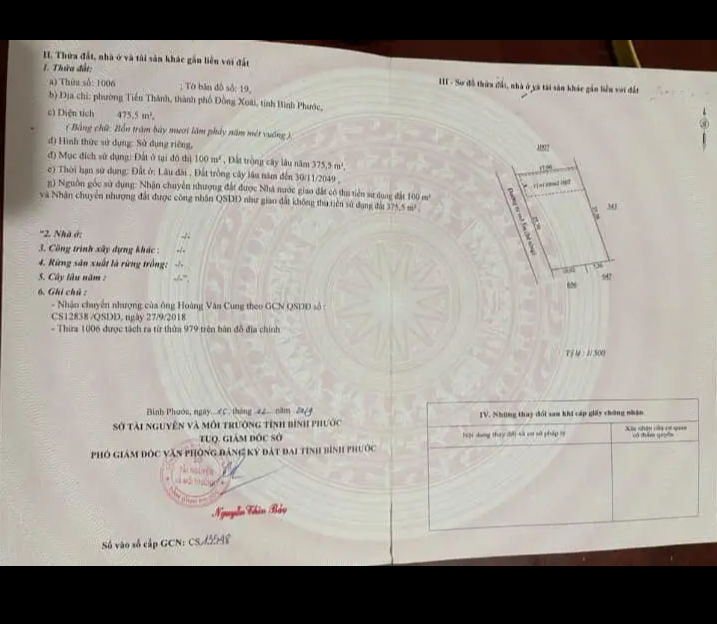 II. Thửa đất, nhà ở và tài sản khác gắn liền với đất
1. Thửa đất:
a) Thửa số: 1006 ; Tờ bản đồ số: 19,
b) Địa chỉ: phường Tiến Thành, thành phố Đồng Xoài, tỉnh Bình Phước,
c) Diện tích 475,5 m²,
( Bằng chữ: Bốn trăm bảy mươi lăm phẩy năm mét vuông ),
d) Hình thức sử dụng: Sử dụng riêng,
đ) Mục đích sử dụng: Đất ở tại đô thị 100 m² , Đất trồng cây lâu năm 375,5 m²,
e) Thời hạn sử dụng: Đất ở: Lâu dài , Đất trồng cây lâu năm đến 30/11/2049 ,
g) Nguồn gốc sử dụng: Nhận chuyển nhượng đất được Nhà nước giao đất có thu tiền sử dụng đất 100 m²
và Nhận chuyển nhượng đất được công nhận QSDĐ như giao đất không thu tiền sử dụng đất 375,5 m² .
"2. Nhà ở: -/-
3. Công trình xây dựng khác : -/-
4. Rừng sản xuất là rừng trồng: -/-
5. Cây lâu năm : -/-",
6. Ghi chú :
- Nhận chuyển nhượng của ông Hoàng Văn Cung theo GCN QSDĐ số :
CS12838 /QSDĐ, ngày 27/9/2018
- Thửa 1006 được tách ra từ thửa 979 trên bản đồ địa chính.
Bình Phước, ngày 25 tháng 02 năm 2019
SỞ TÀI NGUYÊN VÀ MÔI TRƯỜNG TỈNH BÌNH PHƯỚC
TUQ. GIÁM ĐỐC SỞ
PHÓ GIÁM ĐỐC VĂN PHÒNG ĐĂNG KÝ ĐẤT ĐAI TỈNH BÌNH PHƯỚC
TÀI NGUYÊN
VÀ MÔI TRƯỜNG
Nguyễn Thìn Bảo
Số vào sổ cấp GCN: CS
III - Sơ đồ thửa đất, nhà ở và tài sản khác gắn liền với đất
1007
17.00
343
642
Tỷ lệ : 1/ 500
IV. Những thay đổi sau khi cấp giấy chứng nhận
Nội dung thay đổi và cơ sở pháp lý
Xác nhận của cơ quan
có thẩm quyền